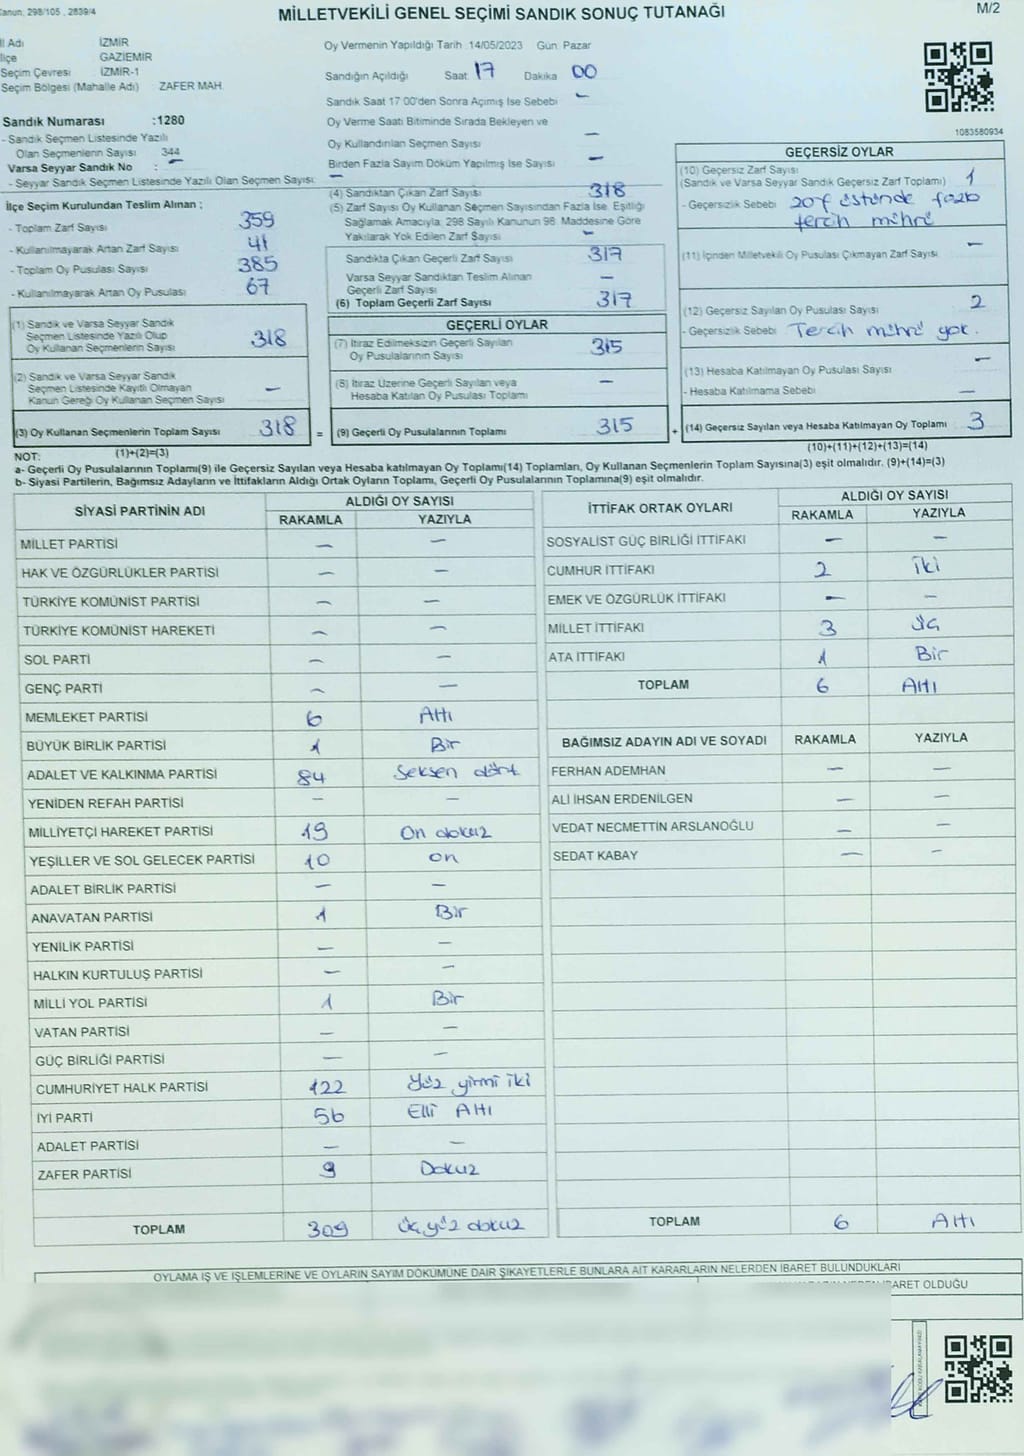 Kanun, 298/105 , 2839/4
MİLLETVEKİLİ GENEL SEÇİMİ SANDIK SONUÇ TUTANAĞI
M/2
İl Adı İZMİR
İlçe GAZİEMİR
Seçim Çevresi İZMİR-1
Seçim Bölgesi (Mahalle Adı) ZAFER MAH.
Oy Vermenin Yapıldığı Tarih :14/05/2023 Gün: Pazar
Sandığın Açıldığı Saat 17 Dakika 00
Sandık Saat 17.00'den Sonra Açımış Ise Sebebi –
Oy Verme Saati Bitiminde Sırada Bekleyen ve
Oy Kullandırılan Seçmen Sayısı –
Birden Fazla Sayım Döküm Yapılmış İse Sayısı –
1083580934
Sandık Numarası :1280
- Sandık Seçmen Listesinde Yazılı
Olan Seçmenlerin Sayısı 344
Varsa Seyyar Sandık No : –
- Seyyar Sandık Seçmen Listesinde Yazılı Olan Seçmen Sayısı: –
İlçe Seçim Kurulundan Teslim Alınan ;
- Toplam Zarf Sayısı 359
- Kullanılmayarak Artan Zarf Sayısı 41
- Toplam Oy Pusulası Sayısı 385
- Kullanılmayarak Artan Oy Pusulası 67
(1) Sandık ve Varsa Seyyar Sandık
Seçmen Listesinde Yazılı Olup
Oy Kullanan Seçmenlerin Sayısı 318
(2) Sandık ve Varsa Seyyar Sandık
Seçmen Listesinde Kayıtlı Olmayan
Kanun Gereği Oy Kullanan Seçmen Sayısı –
(3) Oy Kullanan Seçmenlerin Toplam Sayısı 318 =
(1)+(2)=(3)
(4) Sandıktan Çıkan Zarf Sayısı 318
(5) Zarf Sayısı Oy Kullanan Seçmen Sayısından Fazla İse, Eşitliği
Sağlamak Amacıyla; 298 Sayılı Kanunun 98. Maddesine Göre
Yakılarak Yok Edilen Zarf Sayısı –
Sandıkta Çıkan Geçerli Zarf Sayısı 317
Varsa Seyyar Sandıktan Teslim Alınan
Geçerli Zarf Sayısı –
(6) Toplam Geçerli Zarf Sayısı 317
GEÇERLİ OYLAR
(7) İtiraz Edilmeksizin Geçerli Sayılan
Oy Pusulalarının Sayısı 315
(8) İtiraz Üzerine Geçerli Sayılan veya
Hesaba Katılan Oy Pusulası Toplamı –
(9) Geçerli Oy Pusulalarının Toplamı 315 +
GEÇERSİZ OYLAR
(10) Geçersiz Zarf Sayısı
(Sandık ve Varsa Seyyar Sandık Geçersiz Zarf Toplamı) 1
- Geçersizlik Sebebi zarf üstünde fazla
tercih mührü
(11) İçinden Milletvekili Oy Pusulası Çıkmayan Zarf Sayısı –
(12) Geçersiz Sayılan Oy Pusulası Sayısı 2
- Geçersizlik Sebebi Tercih mührü yok.
(13) Hesaba Katılmayan Oy Pusulası Sayısı –
- Hesaba Katılmama Sebebi –
(14) Geçersiz Sayılan veya Hesaba Katılmayan Oy Toplamı 3
(10)+(11)+(12)+(13)=(14)
NOT:
a- Geçerli Oy Pusulalarının Toplamı(9) ile Geçersiz Sayılan veya Hesaba katılmayan Oy Toplamı(14) Toplamları, Oy Kullanan Seçmenlerin Toplam Sayısına(3) eşit olmalıdır. (9)+(14)=(3)
b- Siyasi Partilerin, Bağımsız Adayların ve İttifakların Aldığı Ortak Oyların Toplamı, Geçerli Oy Pusulalarının Toplamına(9) eşit olmalıdır.
SİYASİ PARTİNİN ADI ALDIĞI OY SAYISI
RAKAMLA YAZIYLA
MİLLET PARTİSİ – –
HAK VE ÖZGÜRLÜKLER PARTİSİ – –
TÜRKİYE KOMÜNİST PARTİSİ – –
TÜRKİYE KOMÜNİST HAREKETİ – –
SOL PARTİ – –
GENÇ PARTİ – –
MEMLEKET PARTİSİ 6 Altı
BÜYÜK BİRLİK PARTİSİ 1 Bir
ADALET VE KALKINMA PARTİSİ 84 Seksen dört
YENİDEN REFAH PARTİSİ – –
MİLLİYETÇİ HAREKET PARTİSİ 19 On dokuz
YEŞİLLER VE SOL GELECEK PARTİSİ 10 on
ADALET BİRLİK PARTİSİ – –
ANAVATAN PARTİSİ 1 Bir
YENİLİK PARTİSİ – –
HALKIN KURTULUŞ PARTİSİ – –
MİLLİ YOL PARTİSİ 1 Bir
VATAN PARTİSİ – –
GÜÇ BİRLİĞİ PARTİSİ – –
CUMHURİYET HALK PARTİSİ 122 Yüz yirmi iki
İYİ PARTİ 56 Elli Altı
ADALET PARTİSİ – –
ZAFER PARTİSİ 9 Dokuz
TOPLAM 309 üç yüz dokuz
İTTİFAK ORTAK OYLARI ALDIĞI OY SAYISI
RAKAMLA YAZIYLA
SOSYALİST GÜÇ BİRLİĞİ İTTİFAKI – –
CUMHUR İTTİFAKI 2 iki
EMEK VE ÖZGÜRLÜK İTTİFAKI – –
MİLLET İTTİFAKI 3 üç
ATA İTTİFAKI 1 Bir
TOPLAM 6 Altı
BAĞIMSIZ ADAYIN ADI VE SOYADI RAKAMLA YAZIYLA
FERHAN ADEMHAN – –
ALİ İHSAN ERDENİLGEN – –
VEDAT NECMETTİN ARSLANOĞLU – –
SEDAT KABAY – –
TOPLAM 6 Altı
OYLAMA İŞ VE İŞLEMLERİNE VE OYLARIN SAYIM DÖKÜMÜNE DAİR ŞİKAYETLERLE BUNLARA AİT KARARLARIN NELERDEN İBARET BULUNDUKLARI
İBARET OLDUĞU